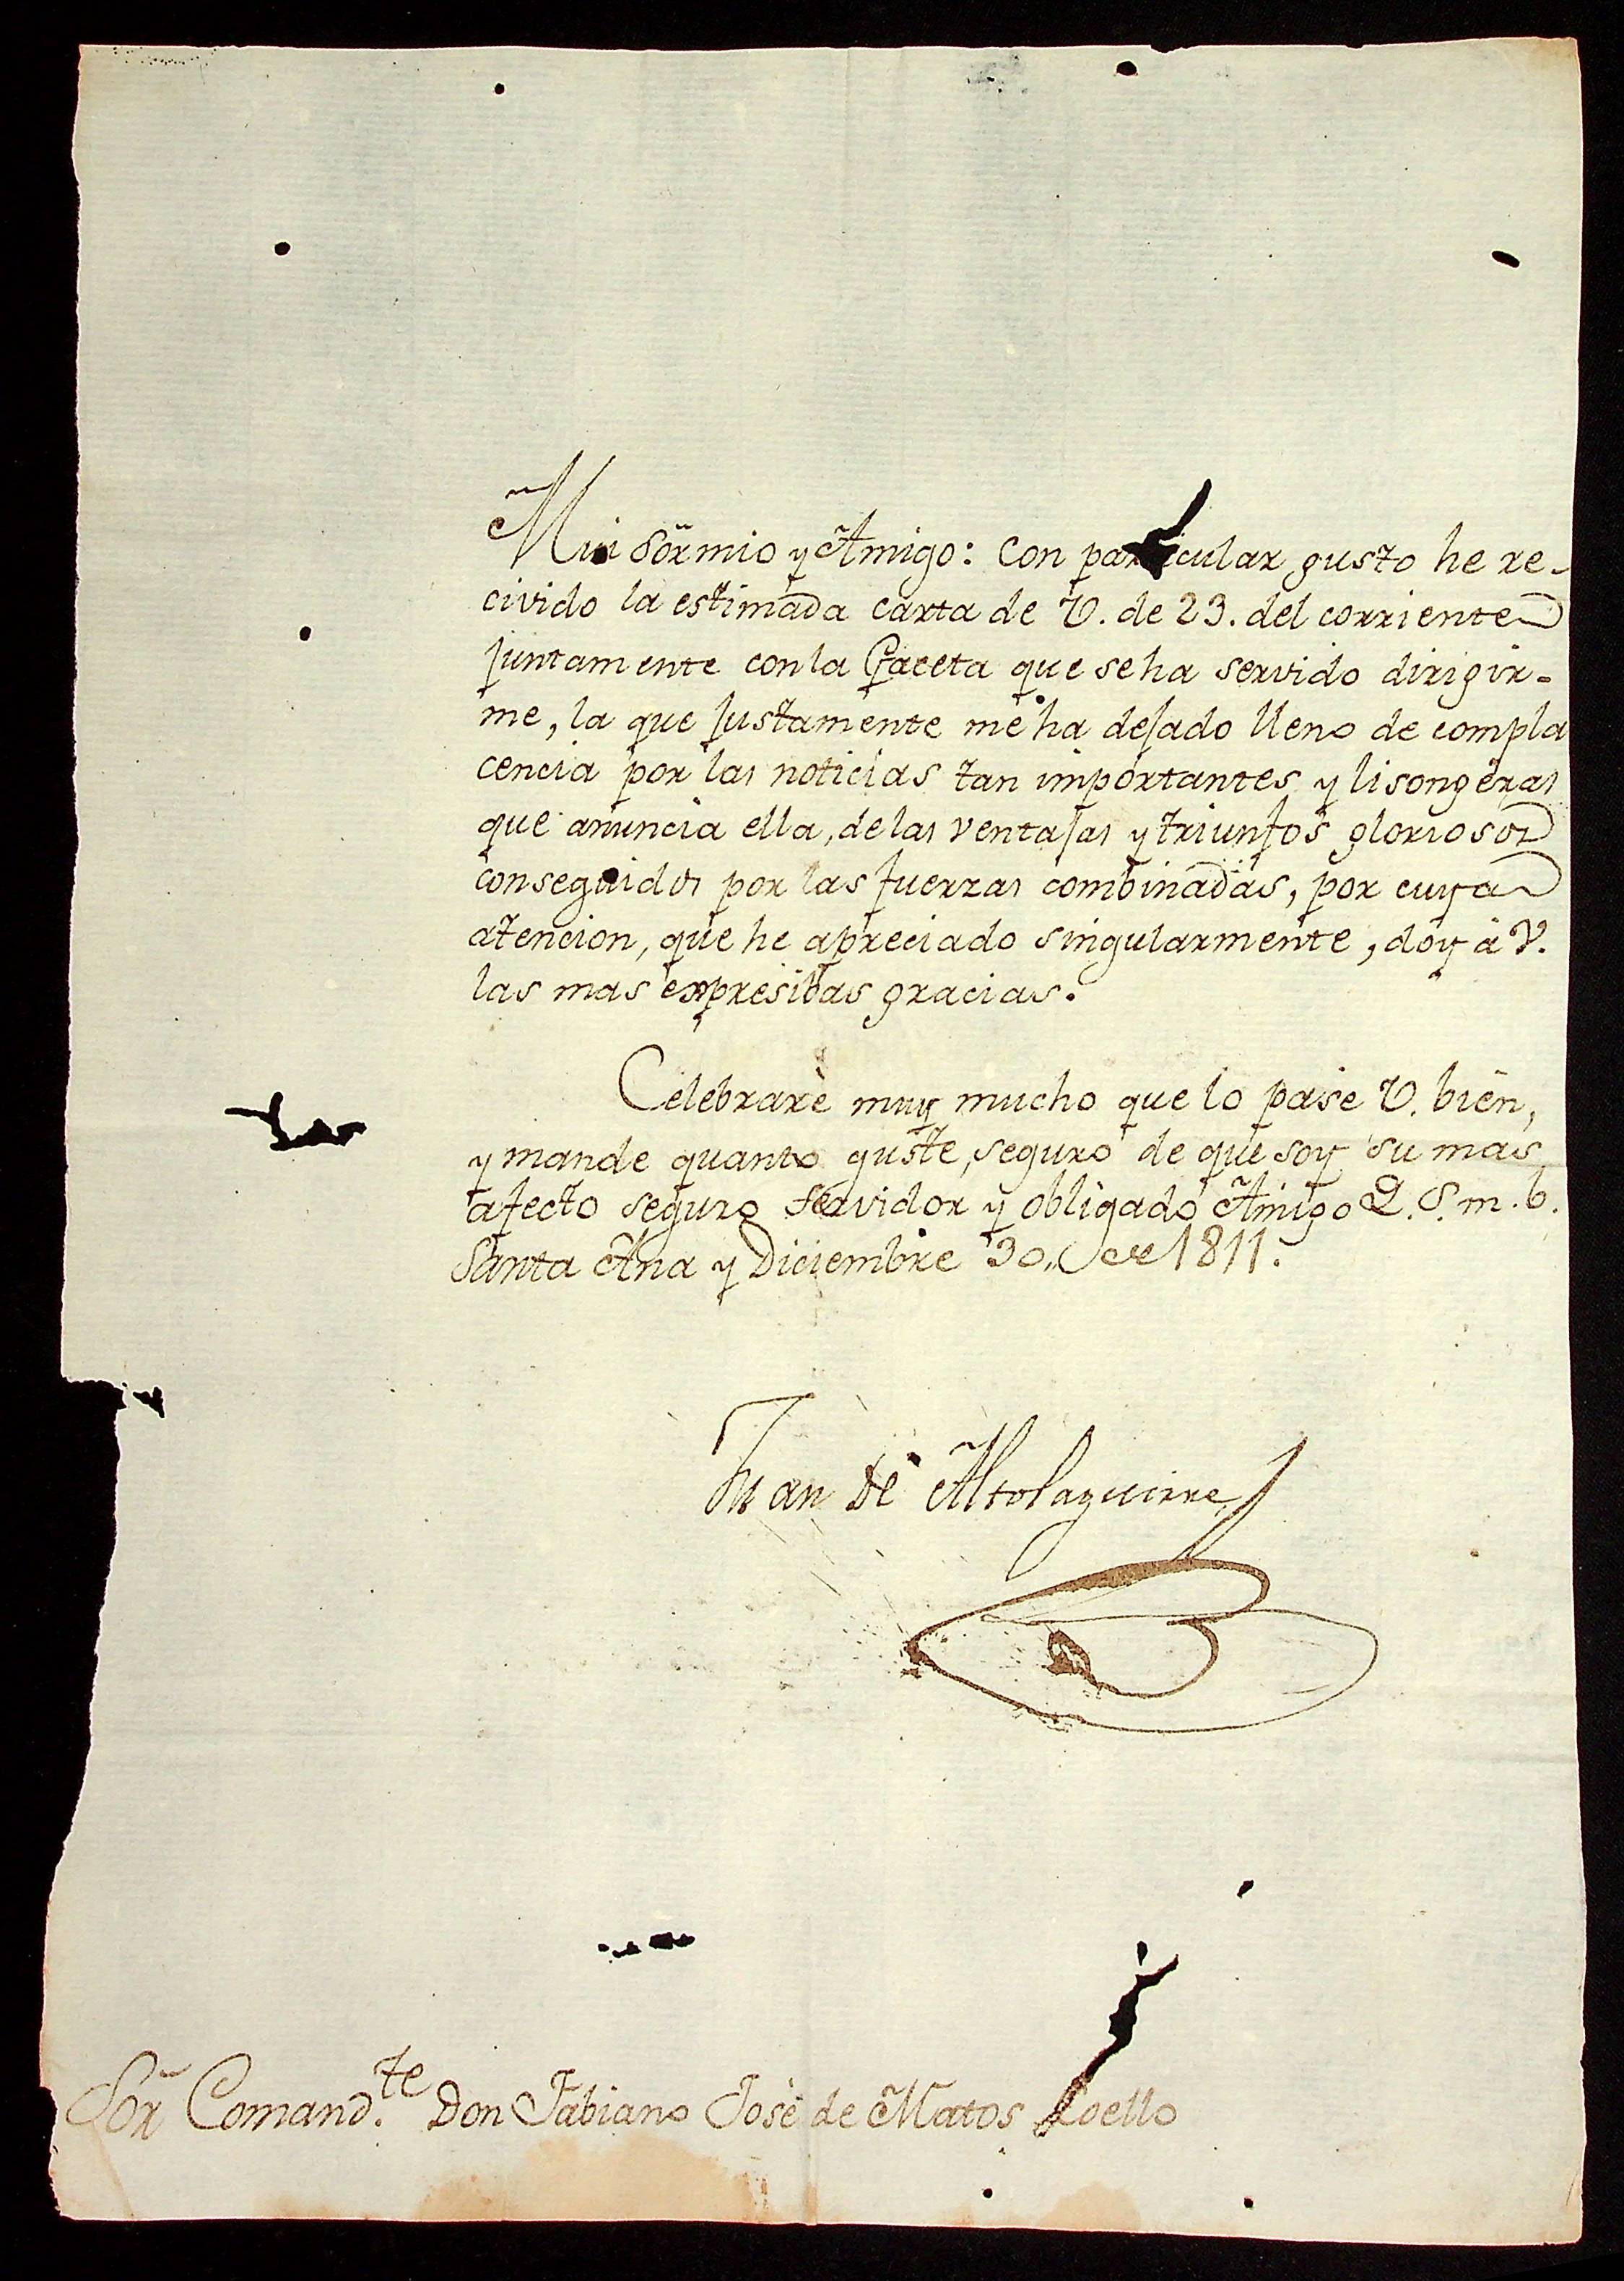 Mui Sõr mio y Amigo: Con particular gusto he re-
civido la estimada carta de V. de 23. del corriente
juntamente con la Gaceta que se ha servido dirigir-
me, la que justamente me ha dejado lleno de compla
cencia por las noticias tan importantes y lisongeras
que anuncia ella, de las ventajas y triunfos gloriosos
conseguidos por las fuerzas combinadas, por cuya
atencion, que he apreciado singularmente, doy à V.
las mas expresibas gracias.
Celebrarè muy mucho que lo pase V. bien,
y mande quanto guste, seguro de que soy su mas
afecto seguro servidor y obligado Amigo Q. S. m. b.
Santa Ana y Diciembre 30,, de 1811.
Juan de Altolaguirre
Sõr Comand.te Don Fabiano Josè de Matos Coello